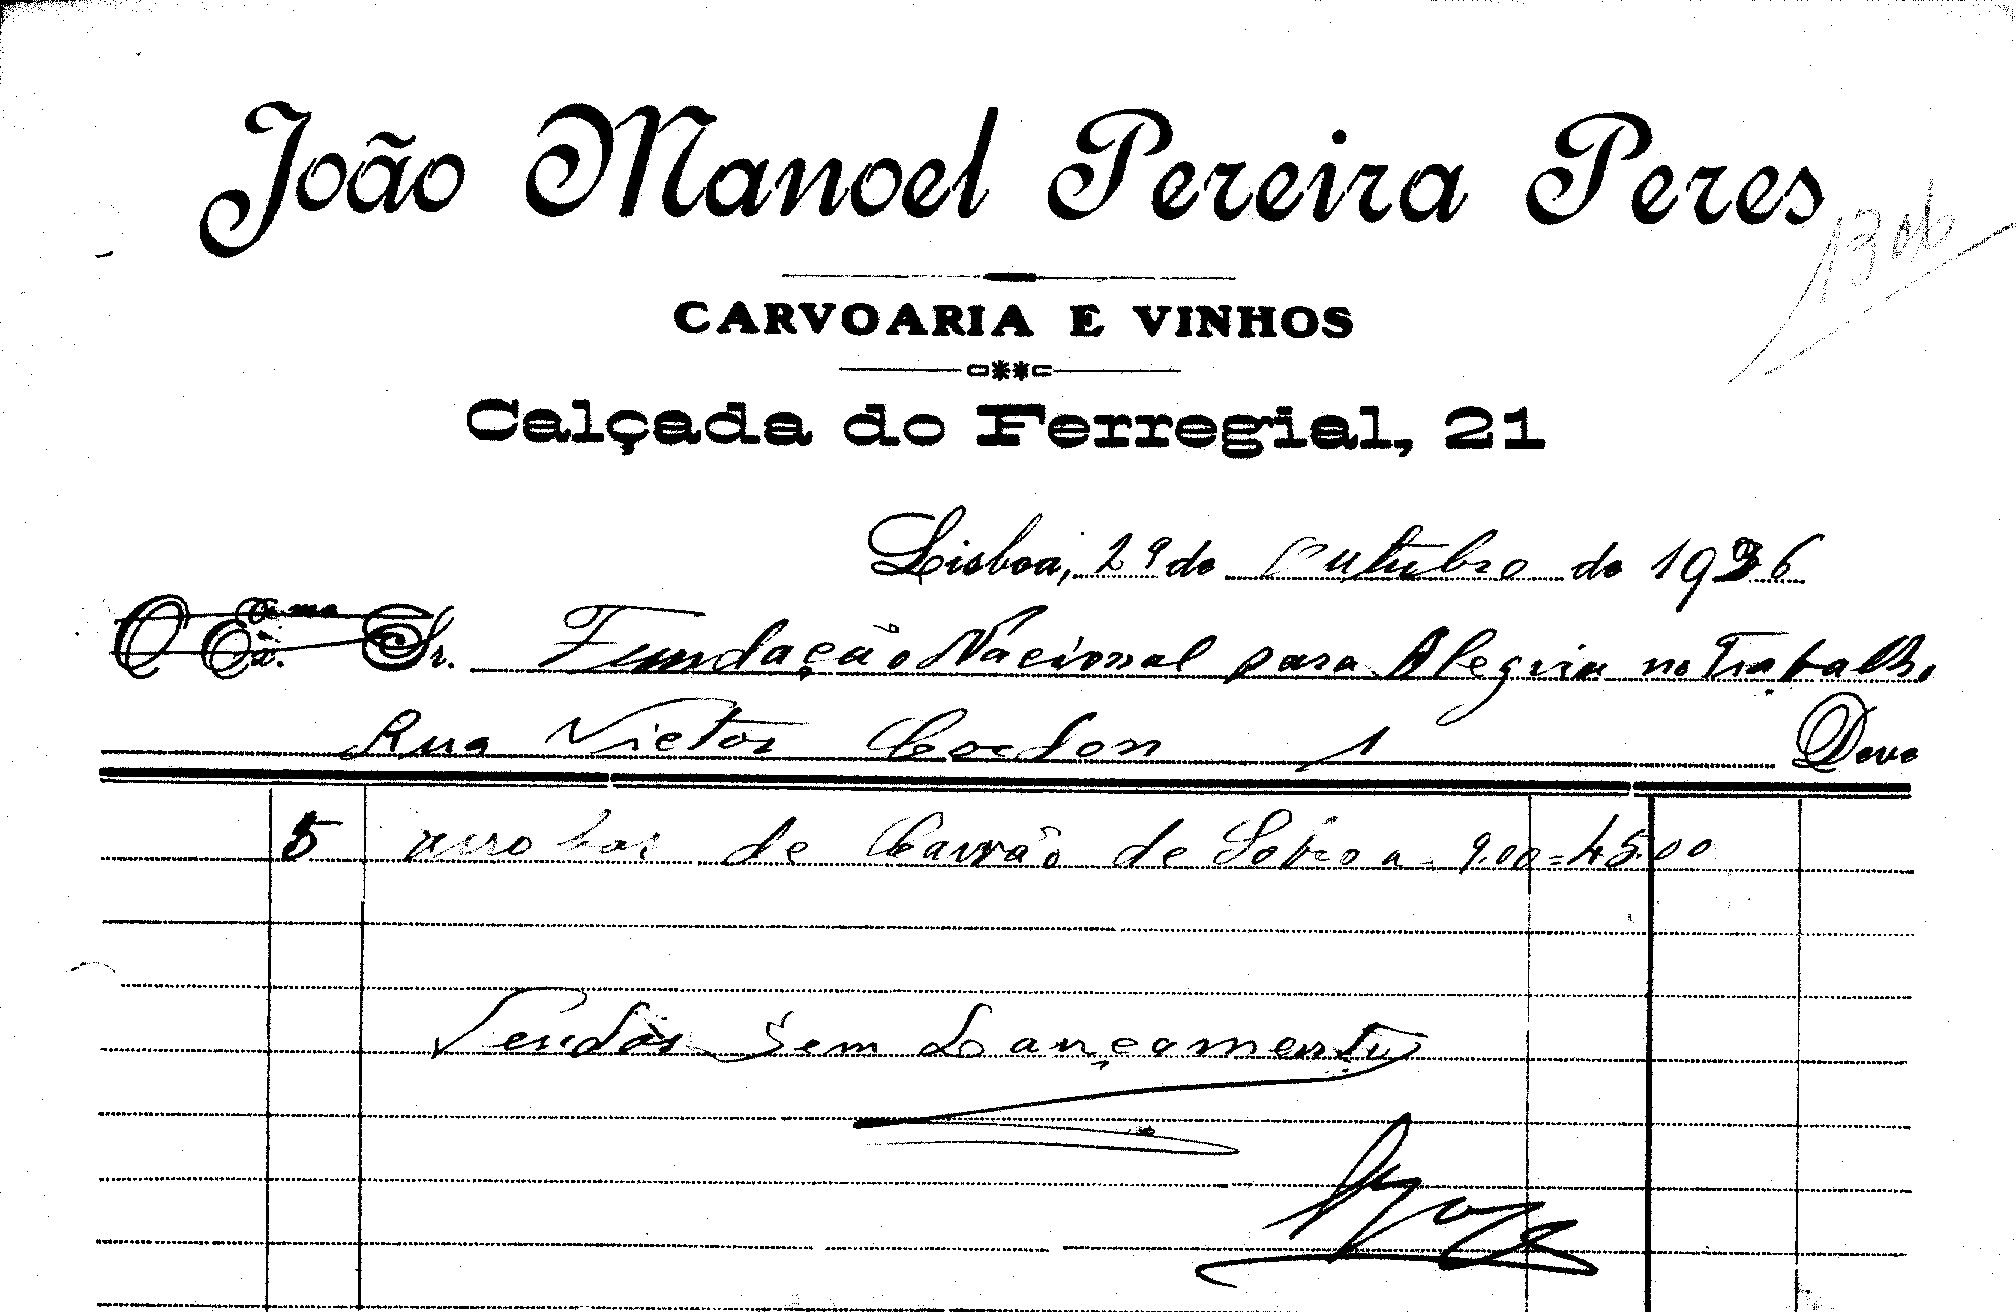 João Manoel Pereira Peres
CARVOARIA E VINHOS
Calçada do Ferregial, 21
Lisboa, 29 de Outubro de 1936
O Exmo Sr. Fundação Nacional para Alegria no Trabalho
Rua Victor Cordon 1 Deve
5 arrobas de Carvão de Sobro a 9.00 = 45.00
Sem Lançamento